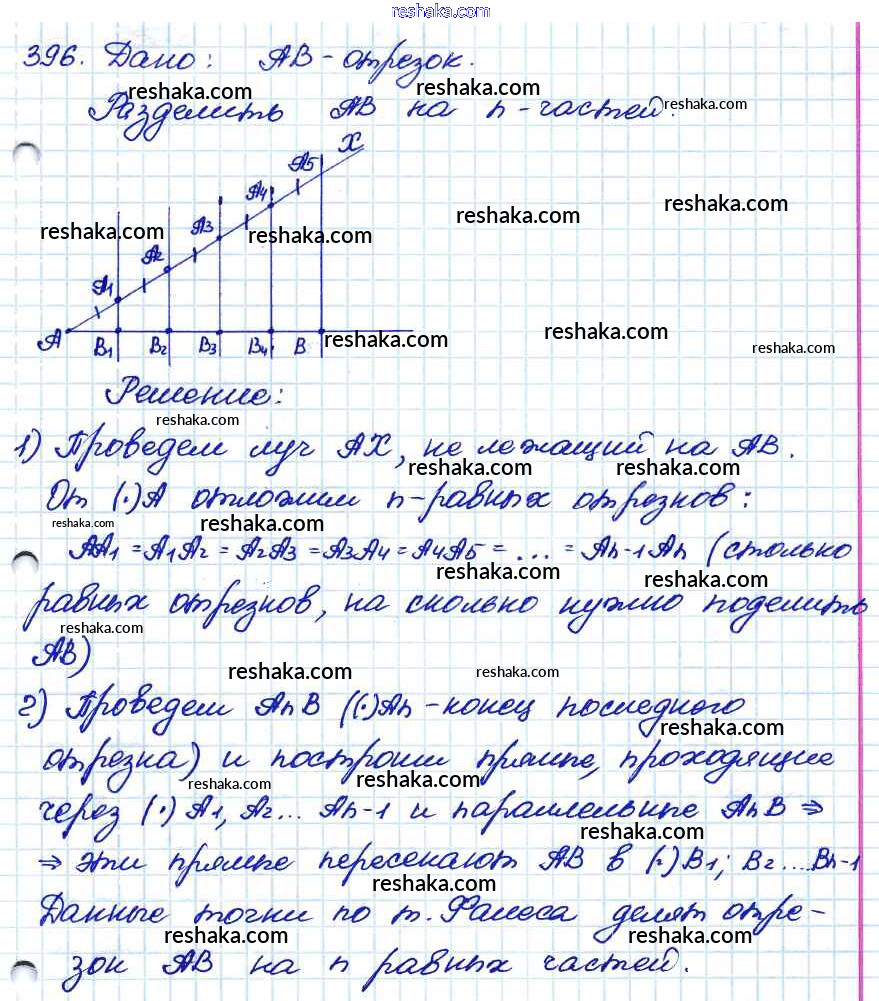 reshaka.com
396. Дано: AB - отрезок.
reshaka.com reshaka.com
Разделить AB на n-частей. reshaka.com
X
A5
A4
reshaka.com
reshaka.com
A3
reshaka.com reshaka.com
A2
A1
reshaka.com
A B1 B2 B3 B4 B reshaka.com
reshaka.com
Решение:
reshaka.com
1) Проведем луч AX, не лежащий на AB.
reshaka.com reshaka.com
От (·)A отложим n-равных отрезков:
reshaka.com reshaka.com
AA1 = A1A2 = A2A3 = A3A4 = A4A5 = ... = An-1An (столько
reshaka.com reshaka.com
равных отрезков, на сколько нужно поделить
reshaka.com
AB)
reshaka.com reshaka.com
2) Проведем AnB ((·)An - конец последного
reshaka.com
отрезка) и построим прямые, проходящие
reshaka.com reshaka.com
через (·) A1, A2... An-1 и параллельные AnB ⇒
reshaka.com
⇒ эти прямые пересекают AB в (·) B1; B2 ....Bn-1
reshaka.com
Данные точки по т. Фалеса делят отре-
reshaka.com reshaka.com
зок AB на n равных частей.
reshaka.com reshaka.com